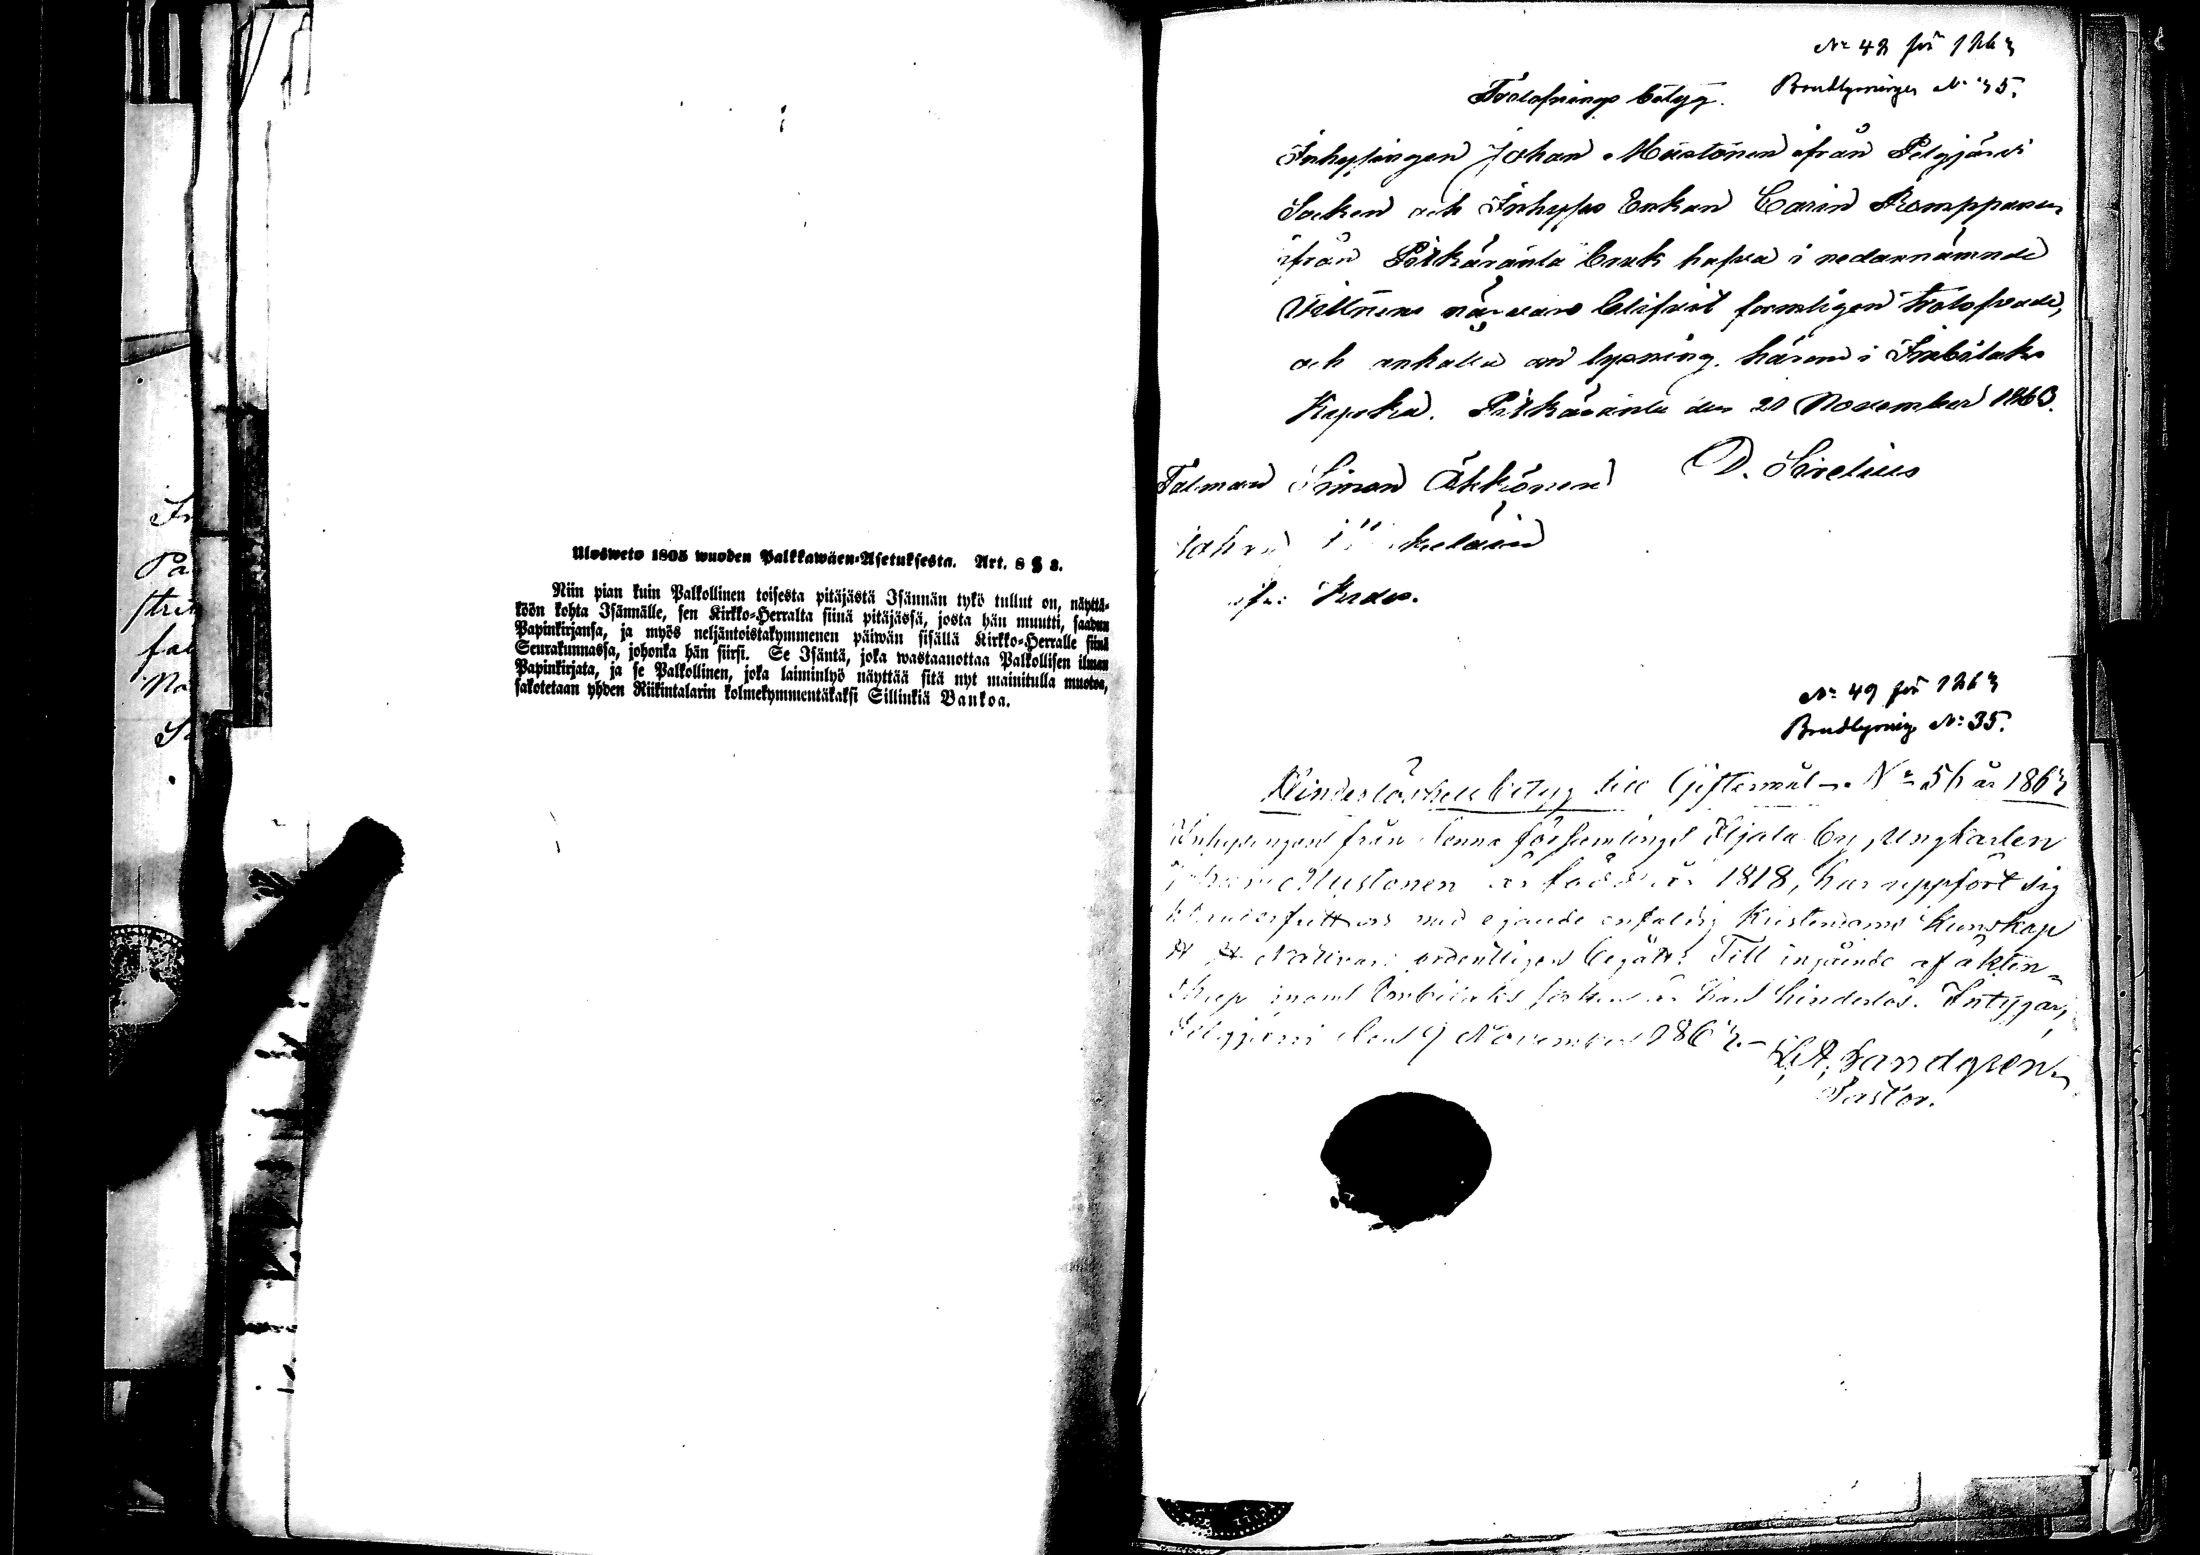 Ulosweto 1805 wuoden Palkkawäen-Asetuksesta. Art. 8 § 3.
Niin pian kuin Palkollinen toisesta pitäjästä Isännän tykö tullut on, näyttä-
köön kohta Isännälle, sen Kirkko-Herralta siinä pitäjässä, josta hän muutti, saadun
Papinkirjansa, ja myös neljäntoistakymmenen päiwän sisällä Kirkko-Herralle siinä
Seurakunnassa, johonka hän siirsi. Se Isäntä, joka wastaanottaa Palkollisen ilman
Papinkirjata, ja se Palkollinen, joka laiminlyö näyttää sitä nyt mainitulla muotoa,
sakotetaan yhden Riikintalarin kolmekymmentäkaksi Sillinkiä Bankoa.
No 48 för 1863
Brudlysningen No 35.
Trolofnings betyg.
Inhysingen Johan Mustonen ifrån Pelgjärvi
Socken och Inhyses Enkan Carin Romppanen
ifrån Pitkäranta bruk hafva i nedannämnde
Vittnens närvaro blifvit formligen trolofvade,
och anhålla om lysning härom i Imbilaks
Kapska. Pitkäranta den 21 November 1863.
Talman Simon Äkkönen D. Sirelius
No 49 för 1863
Brudlysning No 35.
Hinderlöshets betyg till Giftermål No 56 år 1863
Inhysingen från denna församlings by, Ungkarlen
Johan Mustonen är född år 1818, har uppfört sig
med egande enfaldig Kristendoms Kunskap
Nattvard ordentligen begått. Till ingående af äkten=
skap inom Imbilaks socken är han hinderlös. Intygar,
Pelgjärvi den 9 November 1863.
Landgren
Pastor.